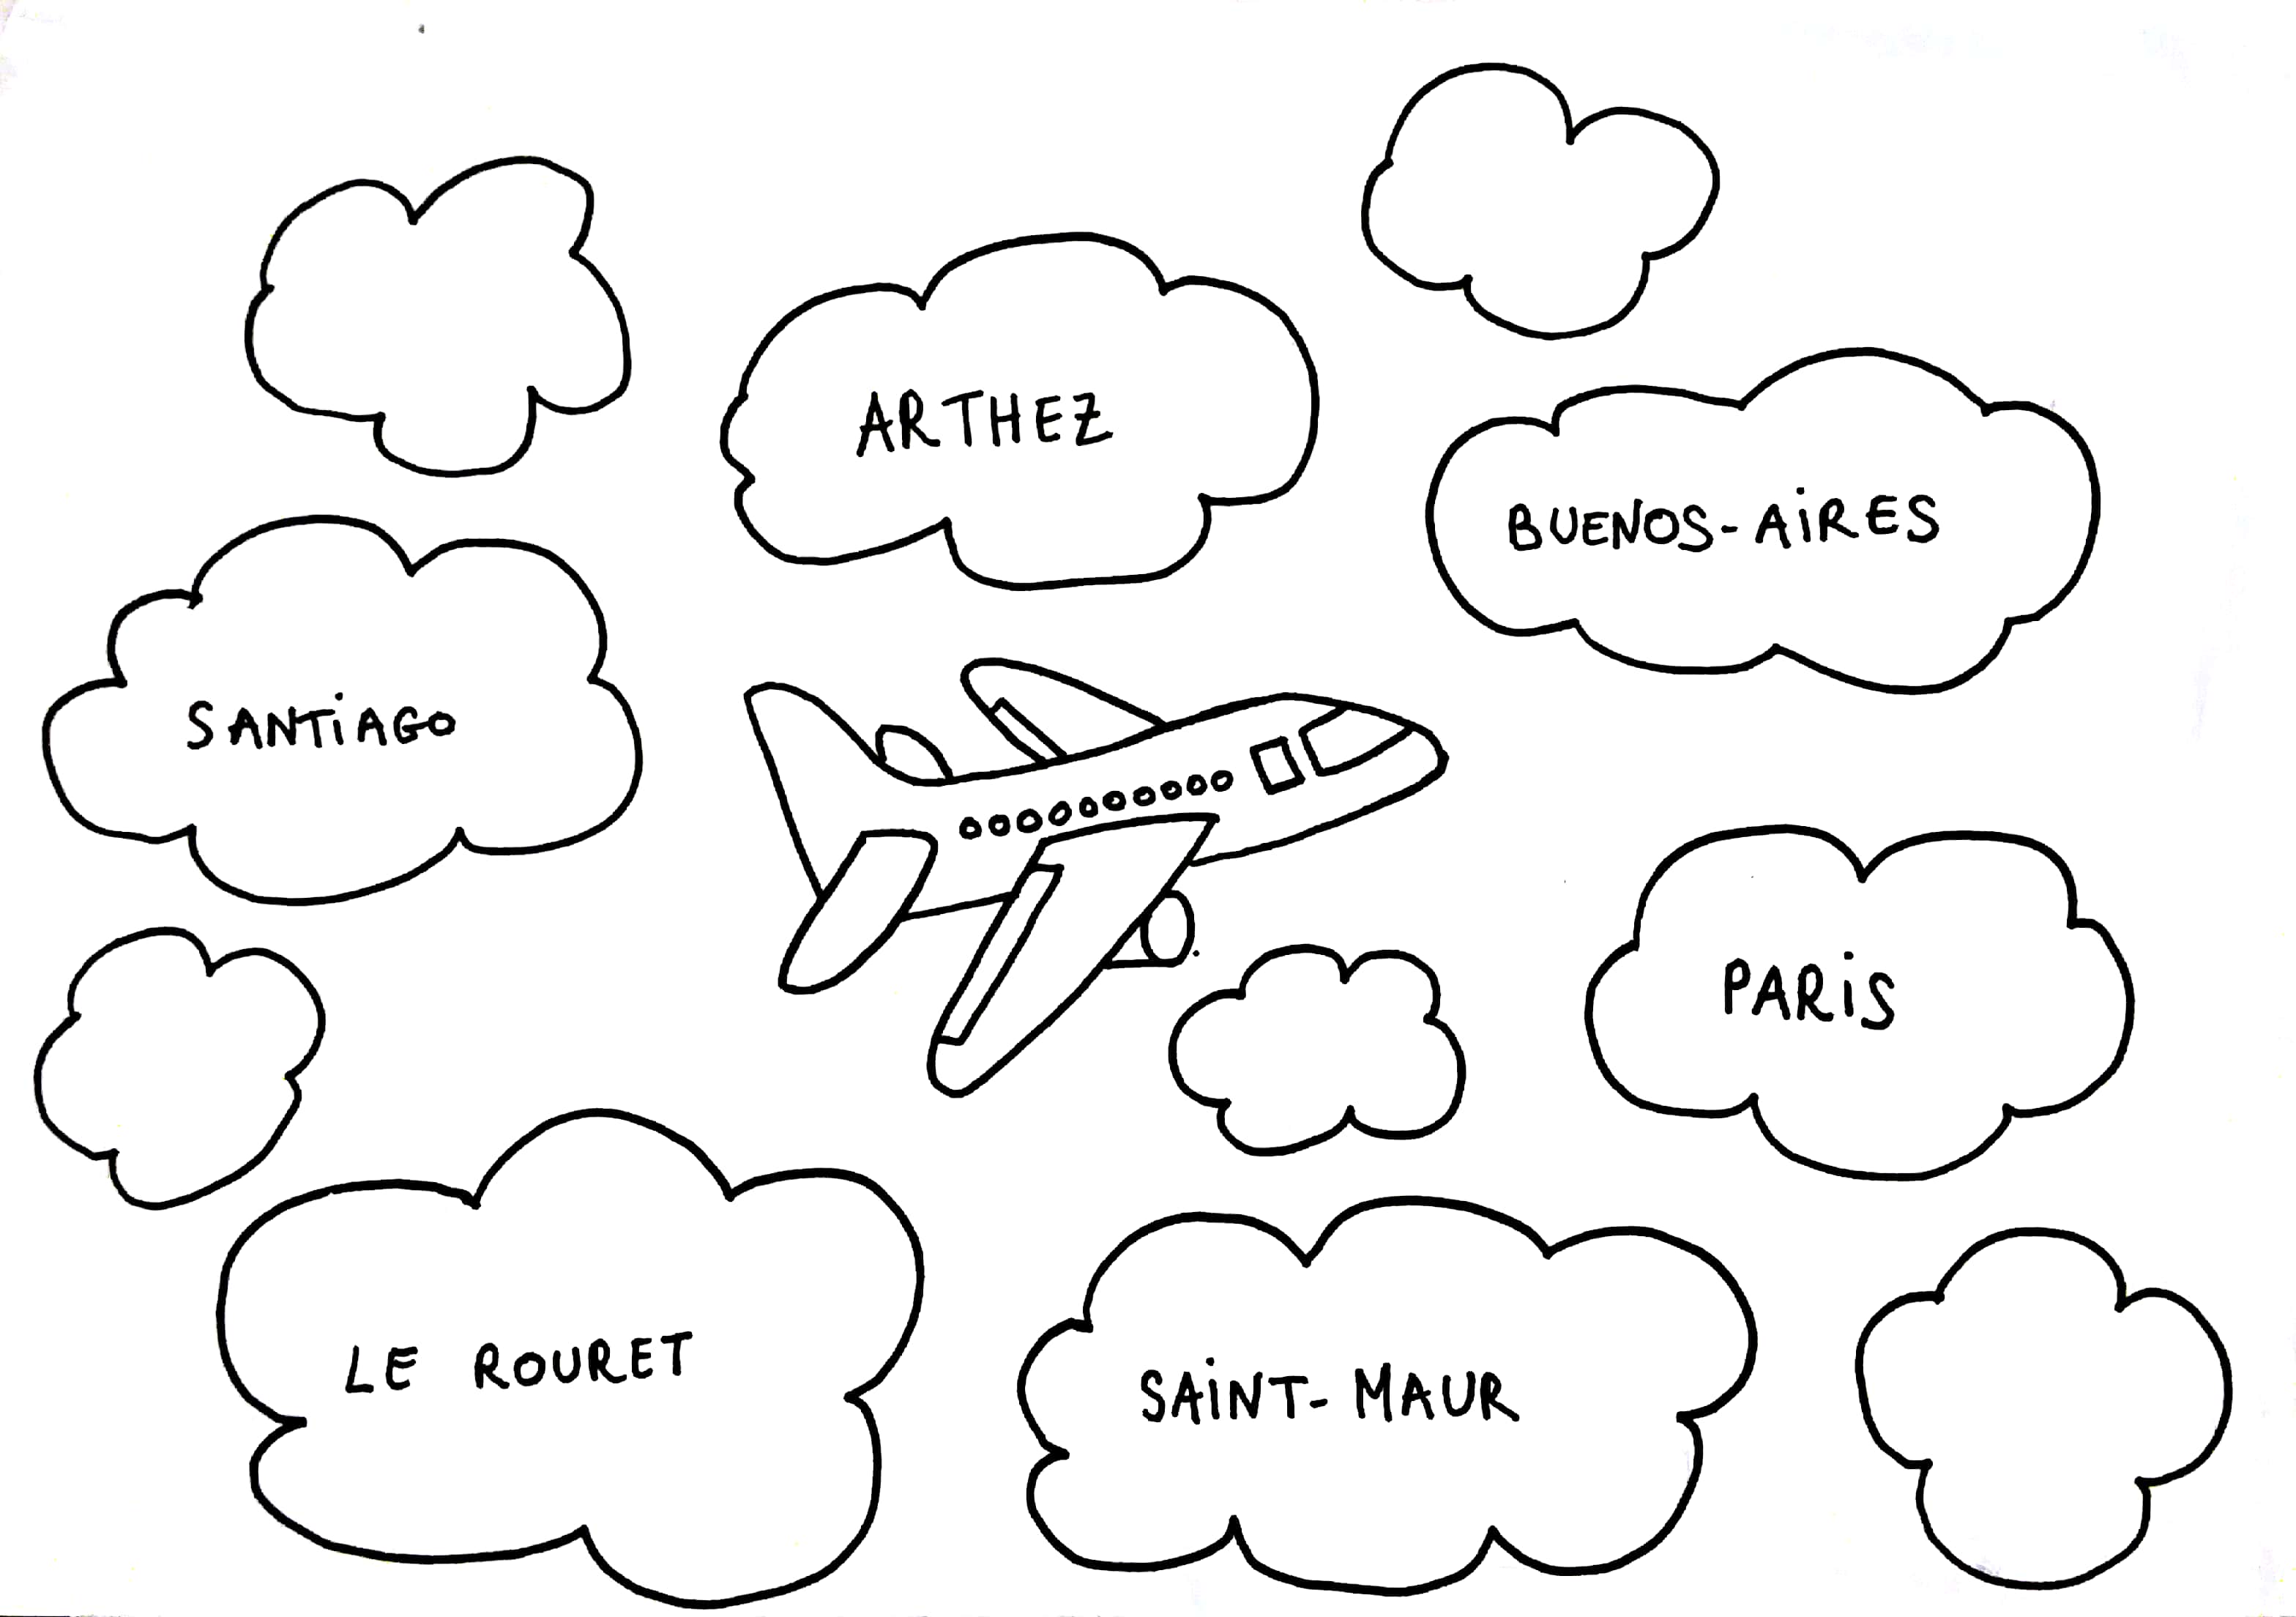 ARTHEZ
BUENOS-AiRES
SANTiAGO
PARiS
LE ROURET
SAiNT-MAUR